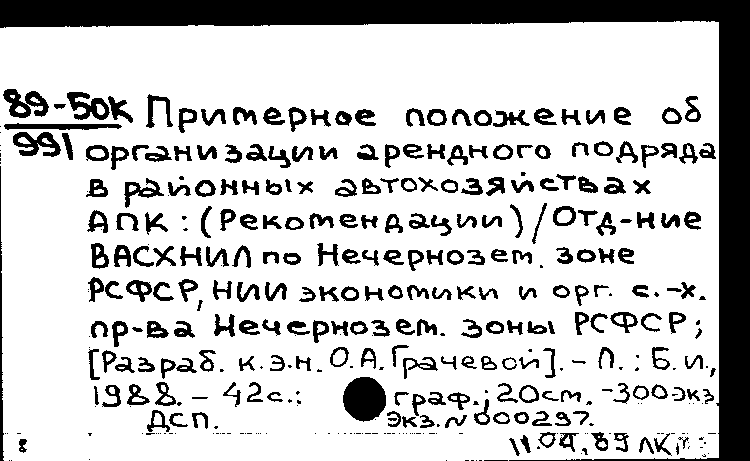 89-БОК Примерное положение об
991 организации арендного подряда
в районных автохозяйствах
АПК : (Рекомендации) / Отд-ние
ВАСХНИЛ по Нечернозем. зоне
РСФСР, НИИ экономики и орг. с.-х.
пр-ва Нечернозем. зоны РСФСР;
[Разраб. к.э.н. О.А. Грачевой]. - Л. : Б.и.,
1988. - 42с.: граф.; 20см. -300экз.
ДСП. Экз. N 000297.
8 11.04.89